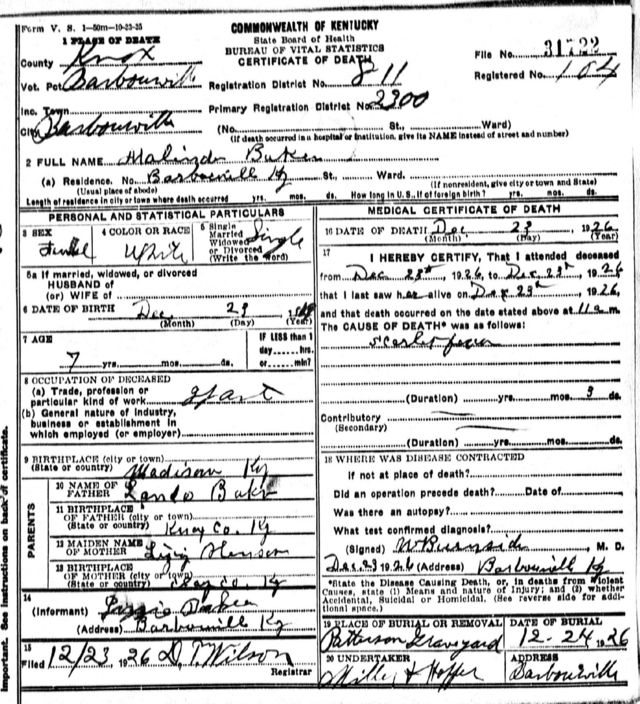 Form V. S. 1-50m-10-23-25
COMMONWEALTH OF KENTUCKY
State Board of Health
BUREAU OF VITAL STATISTICS
CERTIFICATE OF DEATH
1 PLACE OF DEATH
County Knox
Vot. Pct Barbourville
Inc. Town
City Barbourville
File No. 31722
Registered No. 104
Registration District No. 811
Primary Registration District No. 2300
(No. St., Ward)
(If death occurred in a hospital or institution, give its NAME instead of street and number)
2 FULL NAME Malinda Baker
(a) Residence. No. Barbourvill Ky St., Ward.
(Usual place of abode) (If nonresident, give city or town and State)
Length of residence in city or town where death occurred yrs. mos. ds. How long in U. S., if of foreign birth? yrs. mos. ds.
PERSONAL AND STATISTICAL PARTICULARS
3 SEX
4 COLOR OR RACE White
5 Single Married Widowed or Divorced (Write the word) Single
5a If married, widowed, or divorced
HUSBAND of
(or) WIFE of
6 DATE OF BIRTH Dec 23
(Month) (Day) (Year)
7 AGE IF LESS than 1
7 yrs. mos. ds. day hrs. or min?
8 OCCUPATION OF DECEASED
(a) Trade, profession or
particular kind of work
(b) General nature of industry,
business or establishment in
which employed (or employer)
9 BIRTHPLACE (city or town)
(State or country) Madison Ky
PARENTS
10 NAME OF FATHER Baker
11 BIRTHPLACE OF FATHER (city or town)
(State or country) Knox Co. Ky
12 MAIDEN NAME OF MOTHER Henson
13 BIRTHPLACE OF MOTHER (city or town)
(State or country) Co. Ky
14
(Informant) Baker
(Address) Barbourvill Ky
15
Filed 12/23, 1926 D. T. Wilson
Registrar
MEDICAL CERTIFICATE OF DEATH
16 DATE OF DEATH Dec 23 1926
(Month) (Day) (Year)
17
I HEREBY CERTIFY, That I attended deceased
from Dec 23rd, 1926, to Dec 23rd, 1926
that I last saw her alive on Dec 23rd, 1926,
and that death occurred on the date stated above at 11 a m.
The CAUSE OF DEATH* was as follows:
Scarlet fever
(Duration) yrs. mos. 3 ds.
Contributory
(Secondary)
(Duration) yrs. mos. ds.
18 WHERE WAS DISEASE CONTRACTED
if not at place of death?
Did an operation precede death? Date of
Was there an autopsy?
What test confirmed diagnosis?
(Signed) W Burnside, M. D.
Dec. 23 1926 (Address) Barbourvill Ky
*State the Disease Causing Death, or, in deaths from Violent
Causes, state (1) Means and nature of Injury; and (2) whether
Accidental, Suicidal or Homicidal. (See reverse side for addi-
tional space.)
19 PLACE OF BURIAL OR REMOVAL
Patterson Graveyard
DATE OF BURIAL
12-24 1926
20 UNDERTAKER
Miller &
ADDRESS
Barbourville
Important. See instructions on back of certificate.